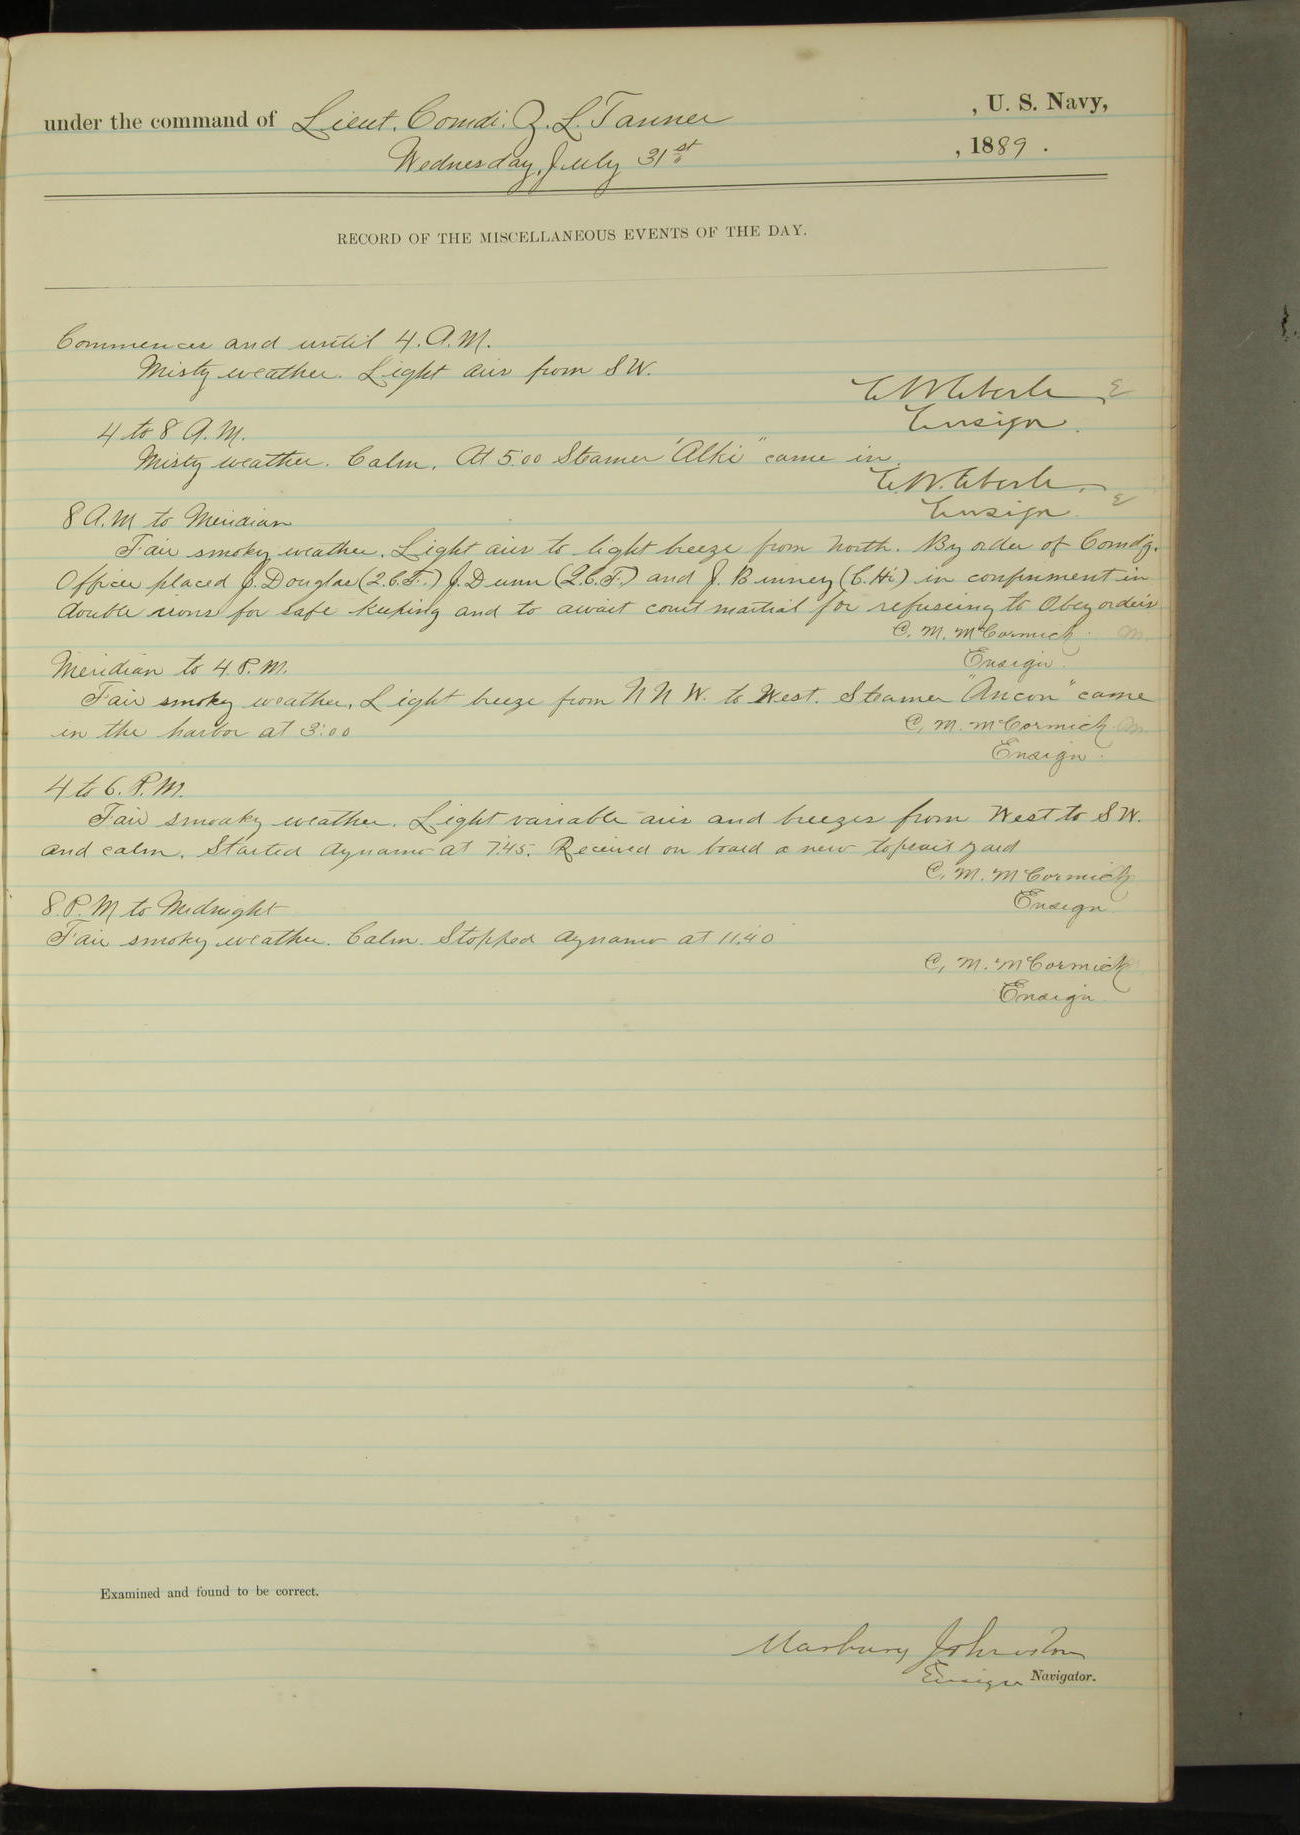 under the command of Lieut. Comdr. Z. L. Tanner , U. S. Navy,
Wednesday, July 31st , 1889 .
RECORD OF THE MISCELLANEOUS EVENTS OF THE DAY.
Commences and until 4. A.M.
Misty weather. Light airs from SW.
E W Eberle
Ensign.
4 to 8 A.M.
Misty weather. Calm. At 5:00 Steamer "Alki" came in.
E. W. Eberle
Ensign.
8 A.M to Meridian
Fair smoky weather. Light airs to light breeze from North. By order of Comd'g.
Officer placed J. Douglas (2.C.F.) J. Dunn (2.C.F.) and J. Binney (C.H.) in confinment in
double irons for safe keeping and to await court martial for refuseing to Obey orders
C. M. McCormick.
Ensign.
Meridian to 4. P.M.
Fair smoky weather, Light breeze from N N W. to West. Steamer "Ancon" came
in the harbor at 3:00
C. M. McCormick
Ensign.
4 to 6. P.M.
Fair smoaky weather. Light variable airs and breezes from West to S W.
and calm. Started dynamo at 7.45. Received on board a new topsail yard
C. M. McCormick
Ensign
8. P.M to Midnight
Fair smoky weather. Calm. Stopped dynamo at 11.40
C, M. McCormick
Ensign
Examined and found to be correct.
Marbury Johnston
Ensign Navigator.